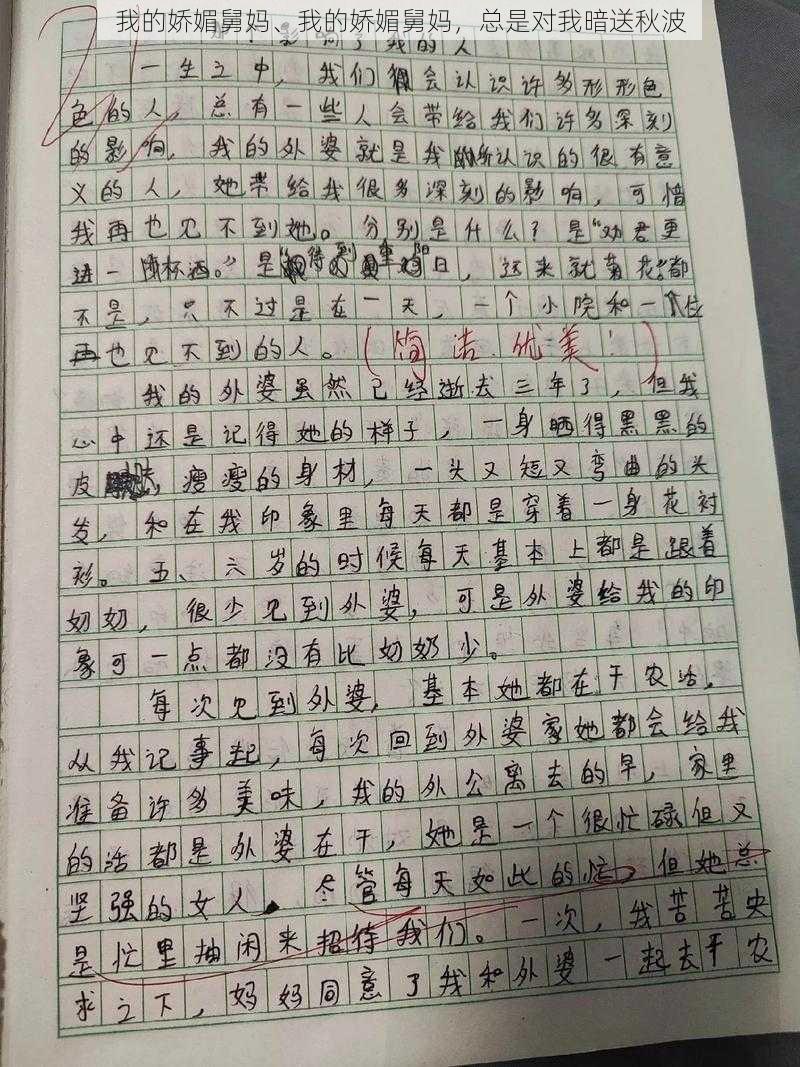 我的娇媚舅妈、我的娇媚舅妈，总是对我暗送秋波
影响了我的人
一生之中，我们会认识许多形形色
色的人，总有一些人会带给我们许多深刻
的影响，我的外婆就是我所认识的很有意
义的人，她带给我很多深刻的影响，可惜
我再也见不到她。分别是什么？是“劝君更
进一杯酒。”是“待到重阳日，还来就菊花”都
不是，只不过是在一天，一个小院和一个位
再也见不到的人。（简洁、优美！）
我的外婆虽然已经逝去三年了，但我
心中还是记得她的样子，一身晒得黑黑的
皮肤，瘦瘦的身材，一头又短又弯曲的头
发，和在我印象里每天都是穿着一身花衬
衫。五、六岁的时候每天基本上都是跟着
奶奶，很少见到外婆，可是外婆给我的印
象可一点都没有比奶奶少。
每次见到外婆，基本她都在干农活，
从我记事起，每次回到外婆家她都会给我
准备许多美味，我的外公离去的早，家里
的活都是外婆在干，她是一个很忙碌但又
坚强的女人，尽管每天如此的忙，但她总
是忙里抽闲来招待我们。一次，我苦苦央
求之下，妈妈同意了我和外婆一起去干农